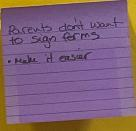 Parents don't want
to sign forms
• Make it easier